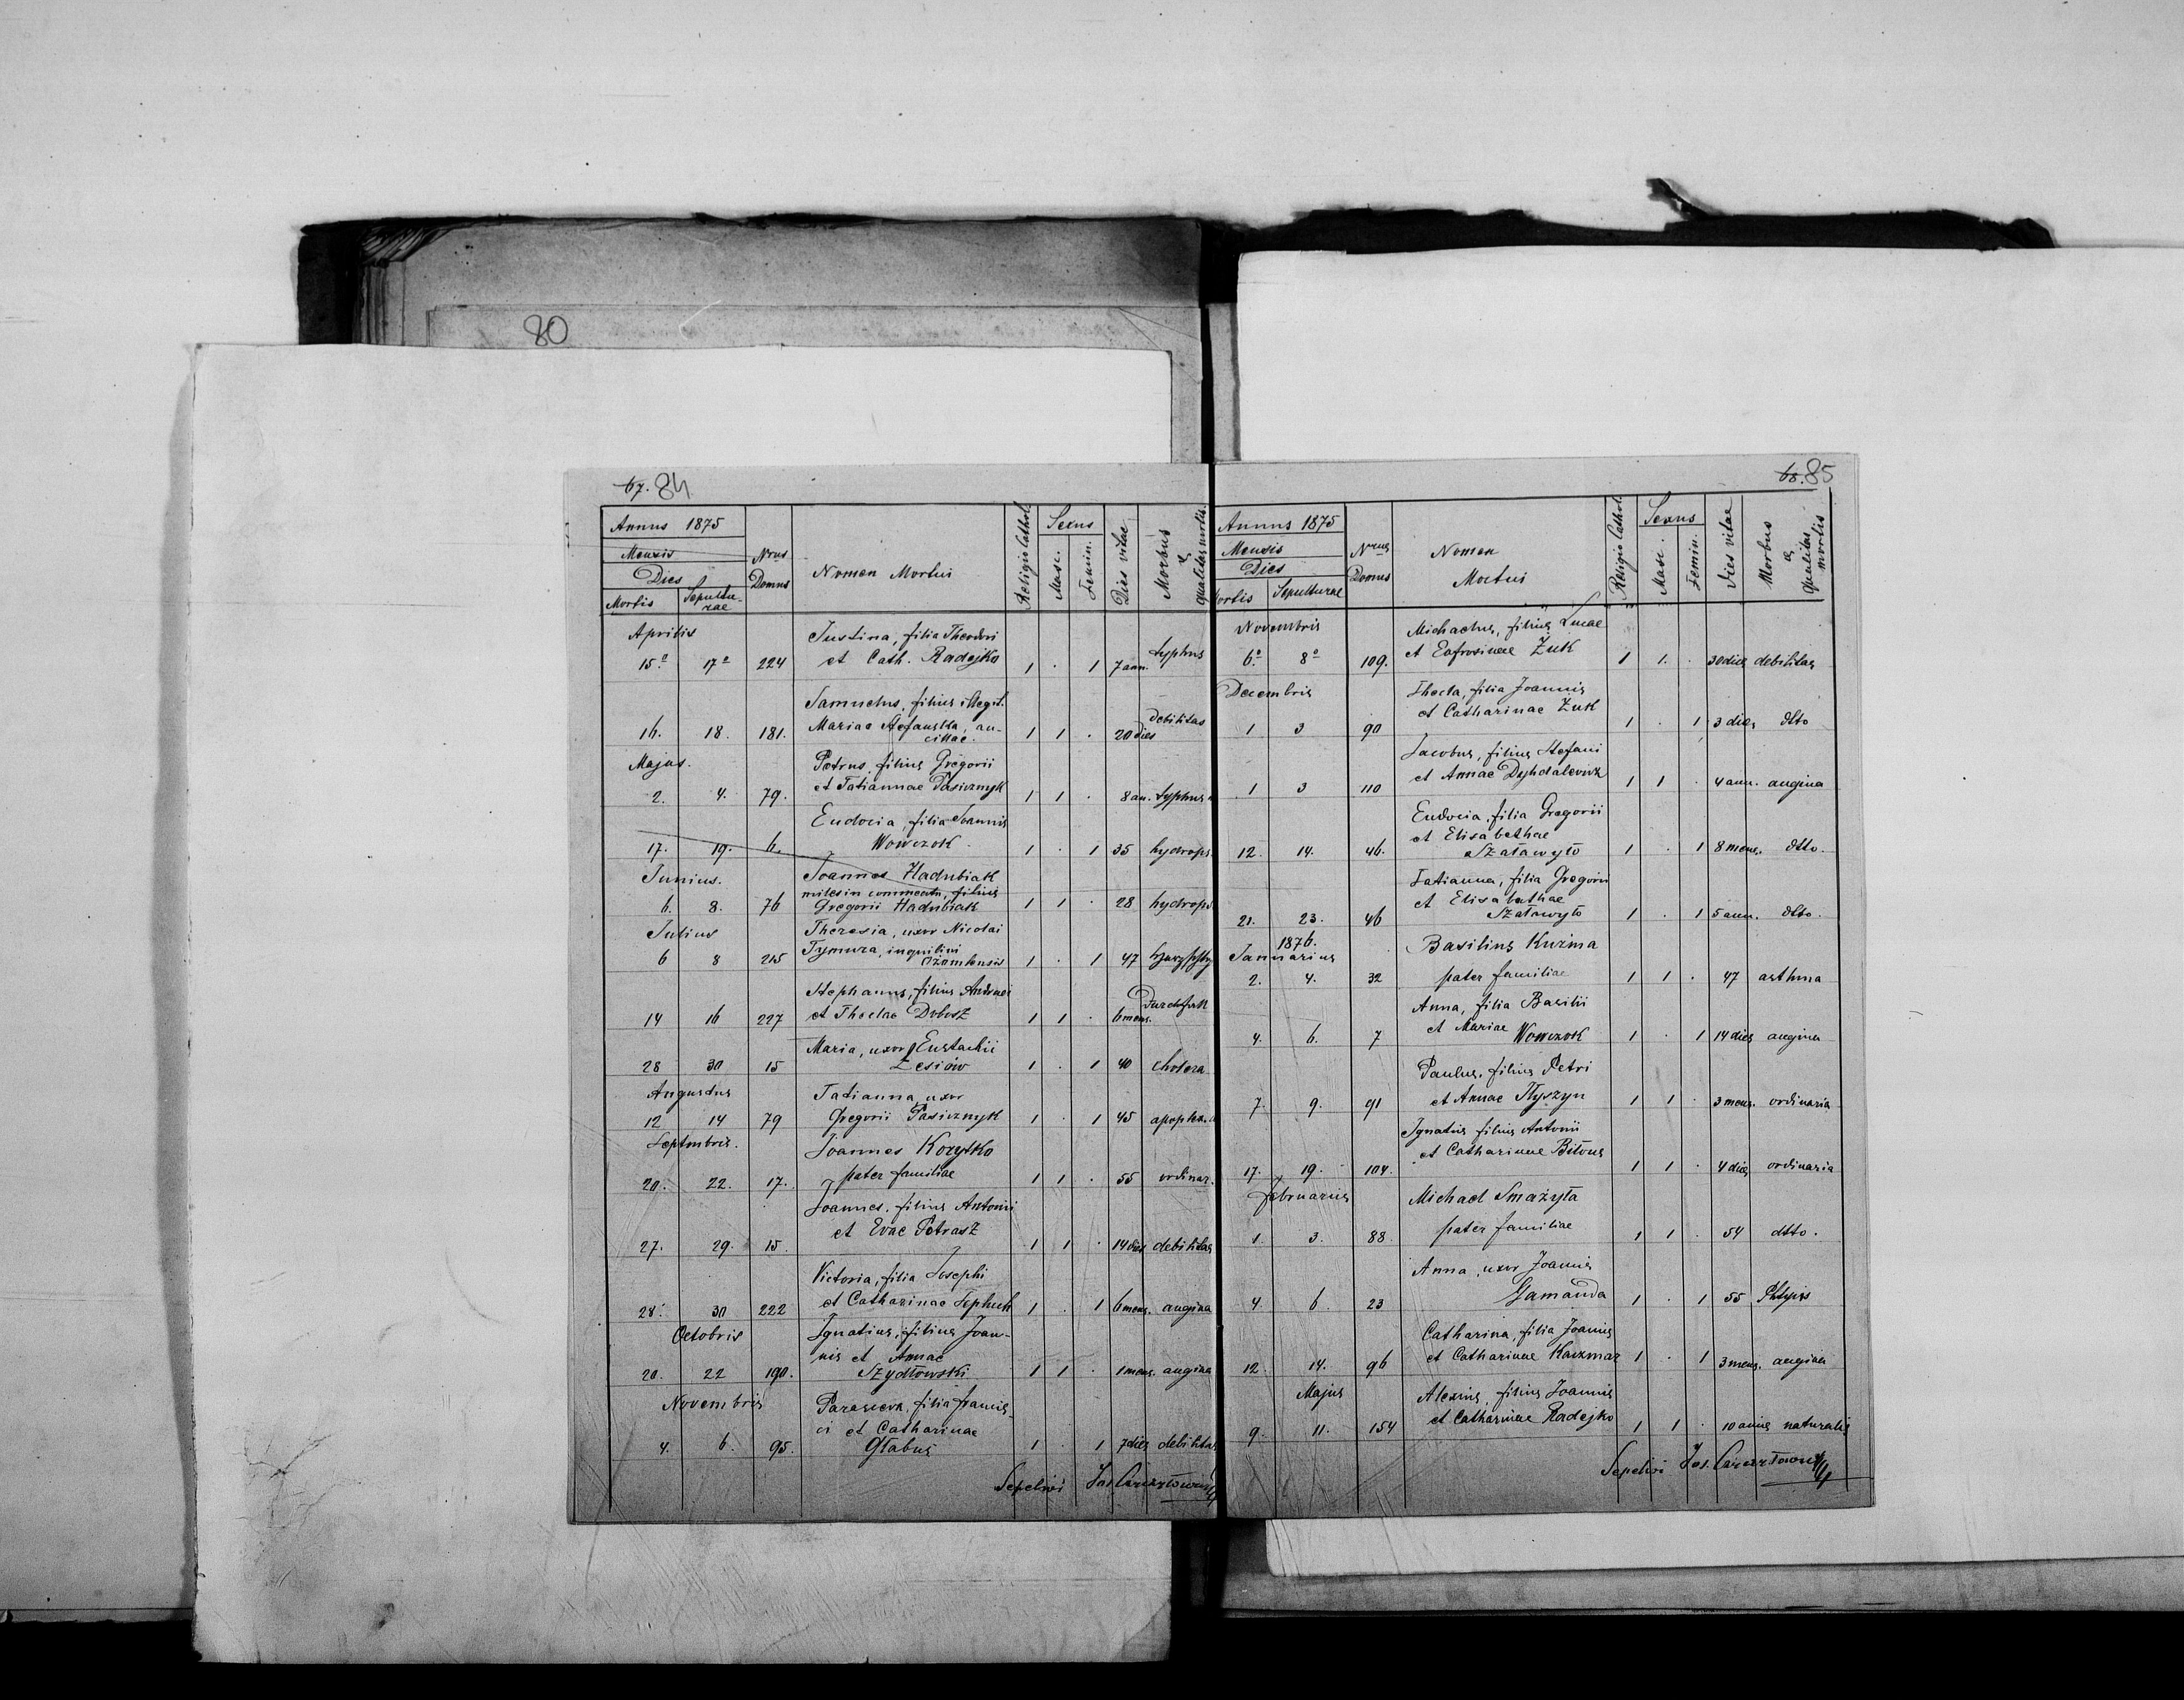 80
67. 84
Annus 1875
Mensis
Dies
Mortis Sepulturae
Nrus Domus
Nomen Mortui
Religio Cathol.
Sexus
Masc.
Femin.
Dies vitae
Morbus & qualitas mortis.
Aprilis Justina, filia Theodori
15º 17º 224 et Cath. Radejko 1 . 1 7 ann. typhus
Samuelus, filius illegit.
16. 18. 181. Mariae Stefanska, an-
cillae. 1 1 . 20 dies debilitas
Majus. Petrus, filius Gregorii
2. 4. 79. et Tatiannae Pasicznyk 1 1 . 8 an. typhus
Eudocia, filia Joannis
17. 19. 6. Wowczok 1 . 1 35 hydrops.
Junius. Joannes Hadubiak
miles in commeatu, filius
6. 8. 76 Gregorii Hadubiak 1 1 . 28 hydrops.
Julius Theresia, uxor Nicolai
6 8 215 Tymura, inquilini
1 . 1 47
Stephanus, filius Andreae
14 16 227 et Theclae Dobosz 1 1 . 6 mens. Durchfall
Maria, uxor Eustachii
28 30 15 Zesiów 1 . 1 40 cholera
Augustus Tatianna, uxor
12 14 79 Gregorii Pasicznyk 1 . 1 45 apoplex.
Septmbris. Joannes Korytko
20. 22. 17. pater familiae 1 1 . 55 ordinar.
Joannes, filius Antonii
27. 29. 15. et Evae Petrasz 1 1 . 14 dies debilitas
Victoria, filia Josephi
28. 30 222 et Catharinae 1 . 1 6 mens. angina
Octobris Ignatius, filius Joan-
nis et Annae
20. 22 190. Szydłowski 1 1 . 1 mens. angina
Novembris Parasceva, filia Francis-
ci et Catharinae
4. 6. 95. Głabus 1 . 1 7 dies debilitas
Sepelivi
68. 85
Annus 1875
Mensis
Dies
Mortis Sepulturae
Nrus Domus
Nomen
Mortui
Religio Cathol.
Sexus
Masc.
Femin.
Dies vitae
Morbus & qualitas mortis
Novembris Michaelus, filius Lucae
6º 8º 109. et Eufrosinae Żuk 1 1. . 30 dies debilitas
Decembris Thecla, filia Joannis
1 3 90 et Catharinae Żuk 1 . 1 3 dies dtto
Jacobus, filius Stefani
1 3 110 et Annae Dyhdalewicz 1 1 . 4 ann. angina
Eudocia, filia Gregorii
et Elisabethae
12. 14. 46. Szaławyło 1 . 1 8 mens. dtto.
Tatianna, filia Gregorii
et Elisabethae
21. 23. 46 Szaławyło 1 . 1 5 ann. dtto.
1876.
Januarius Basilius Kuźma
2. 4. 32 pater familiae 1 1 . 47 asthma
Anna, filia Basilii
4. 6. 7 et Mariae Wowczok 1 . 1 14 dies angina
Paulus, filius Petri
7. 9. 91 et Annae 1 1 . 3 mens. ordinaria
Ignatius filius Antonii
17. 19. 104. et Catharinae Biłous 1 1 . 4 dies ordinaria
Februarius Michael Smażyła
1. 3. 88. pater familiae 1 1 . 54 dtto.
Anna, uxor Joannis
4. 6. 23 Gamanda 1 . 1 55
Catharina, filia Joannis
12. 14. 96 et Catharinae Kaczmar 1 . 1 3 mens. angina
Majus Alexius, filius Joannis
9. 11. 154 et Catharinae Radejko 1 1 . 10 annis naturalis
Sepelivi